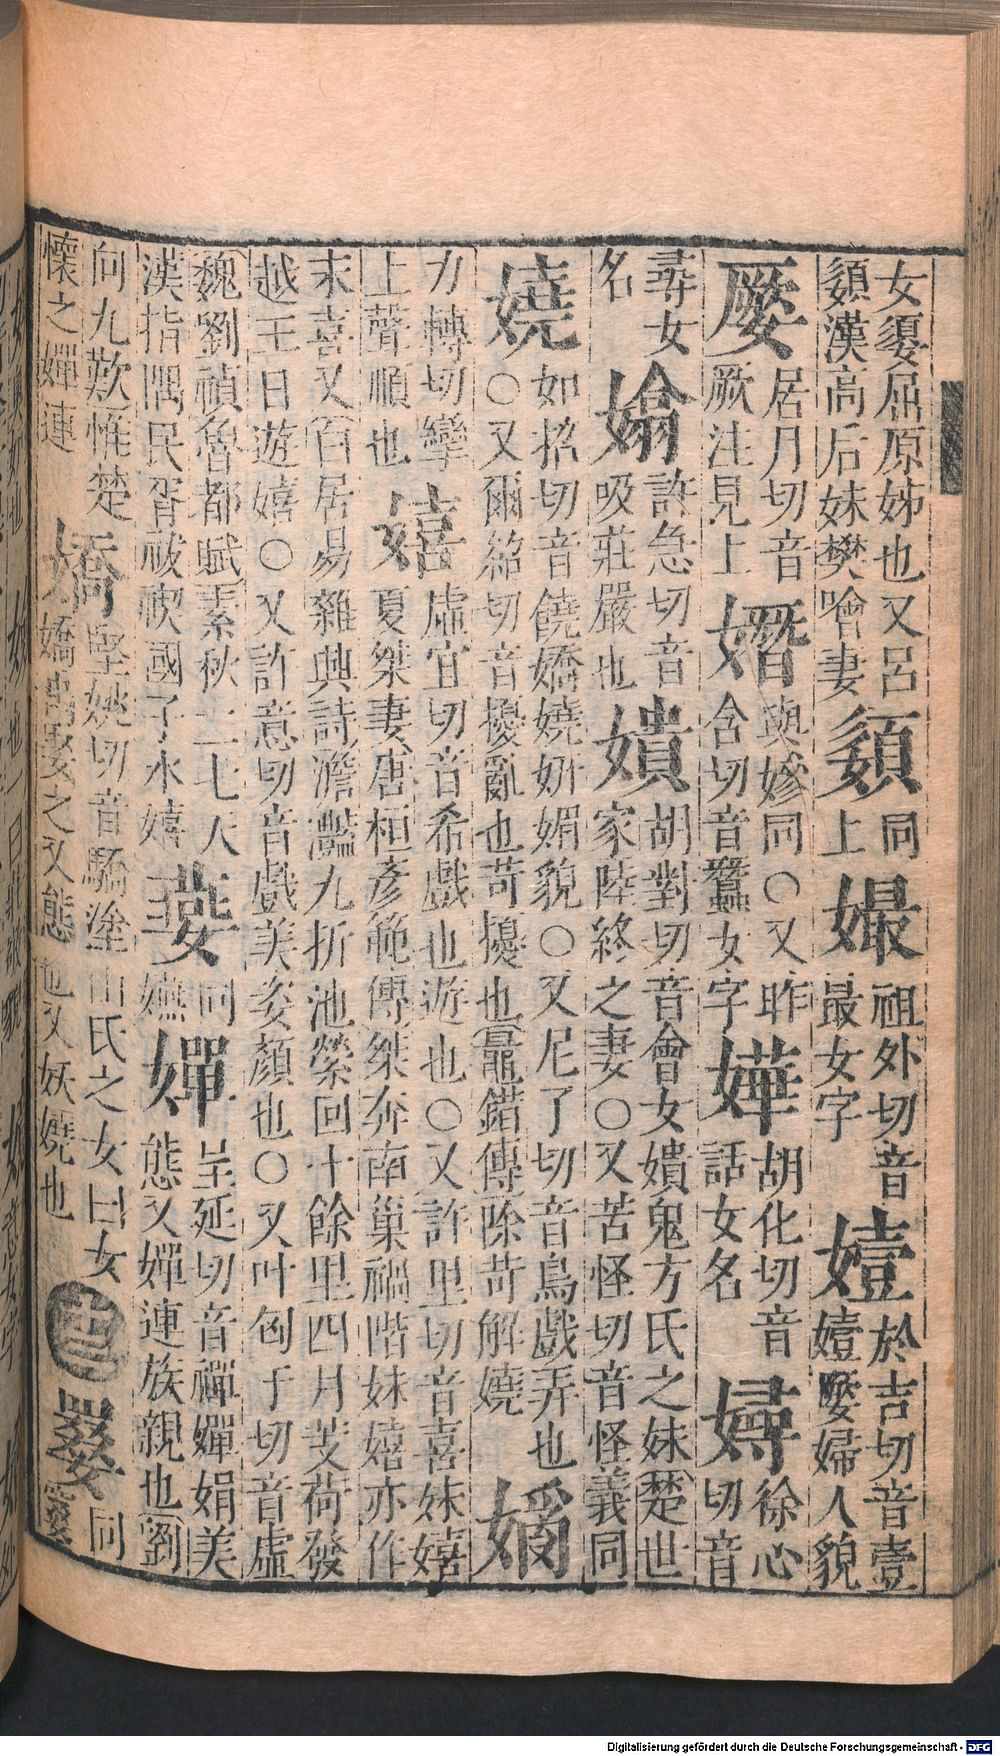 女嬃屈原姊也又呂
媭漢高后妹樊噲妻
嬃同
上
嬵祖外切音
最女字
嬄於吉切音壹
嬄嫛婦人貌
嫛居月切音
厥注見上
㜺與嫪同○又昨
含切音蠶女字
嬅胡化切音
話女名
㜦徐心
切音
尋女
名
嬆許急切音
吸莊嚴也
嬇胡對切音會女嬇鬼方氏之妹楚世
家陸終之妻○又苦怪切音怪義同
嬈如招切音饒嬌嬈妍媚貌○又尼了切音鳥戲弄也
○又爾紹切音擾亂也苛擾也鼂錯傳除苛解嬈
嫡
力轉切孿
上聲順也
嬉虛宜切音希戲也遊也○又許里切音喜妹嬉
夏桀妻唐桓彥範傳桀奔南巢禍階妹嬉亦作
末喜又白居易雜興詩灩灩九折池縈回十餘里四月芰荷發
越王日遊嬉○又許意切音戲美姿顏也○又叶匈于切音虛
魏劉禎魯都賦素秋二七天
漢指隅民胥祓禊國子水嬉
嬊同
嬿
嬋呈延切音禪嬋娟美
態又嬋連族親也劉
向九歎惟楚
懷之嬋連
嬌堅姚切音驕塗山氏之女曰女
嬌禹娶之又態也又妖嬈也
同
Digitalisierung gefördert durch die Deutsche Forschungsgemeinschaft - DFG